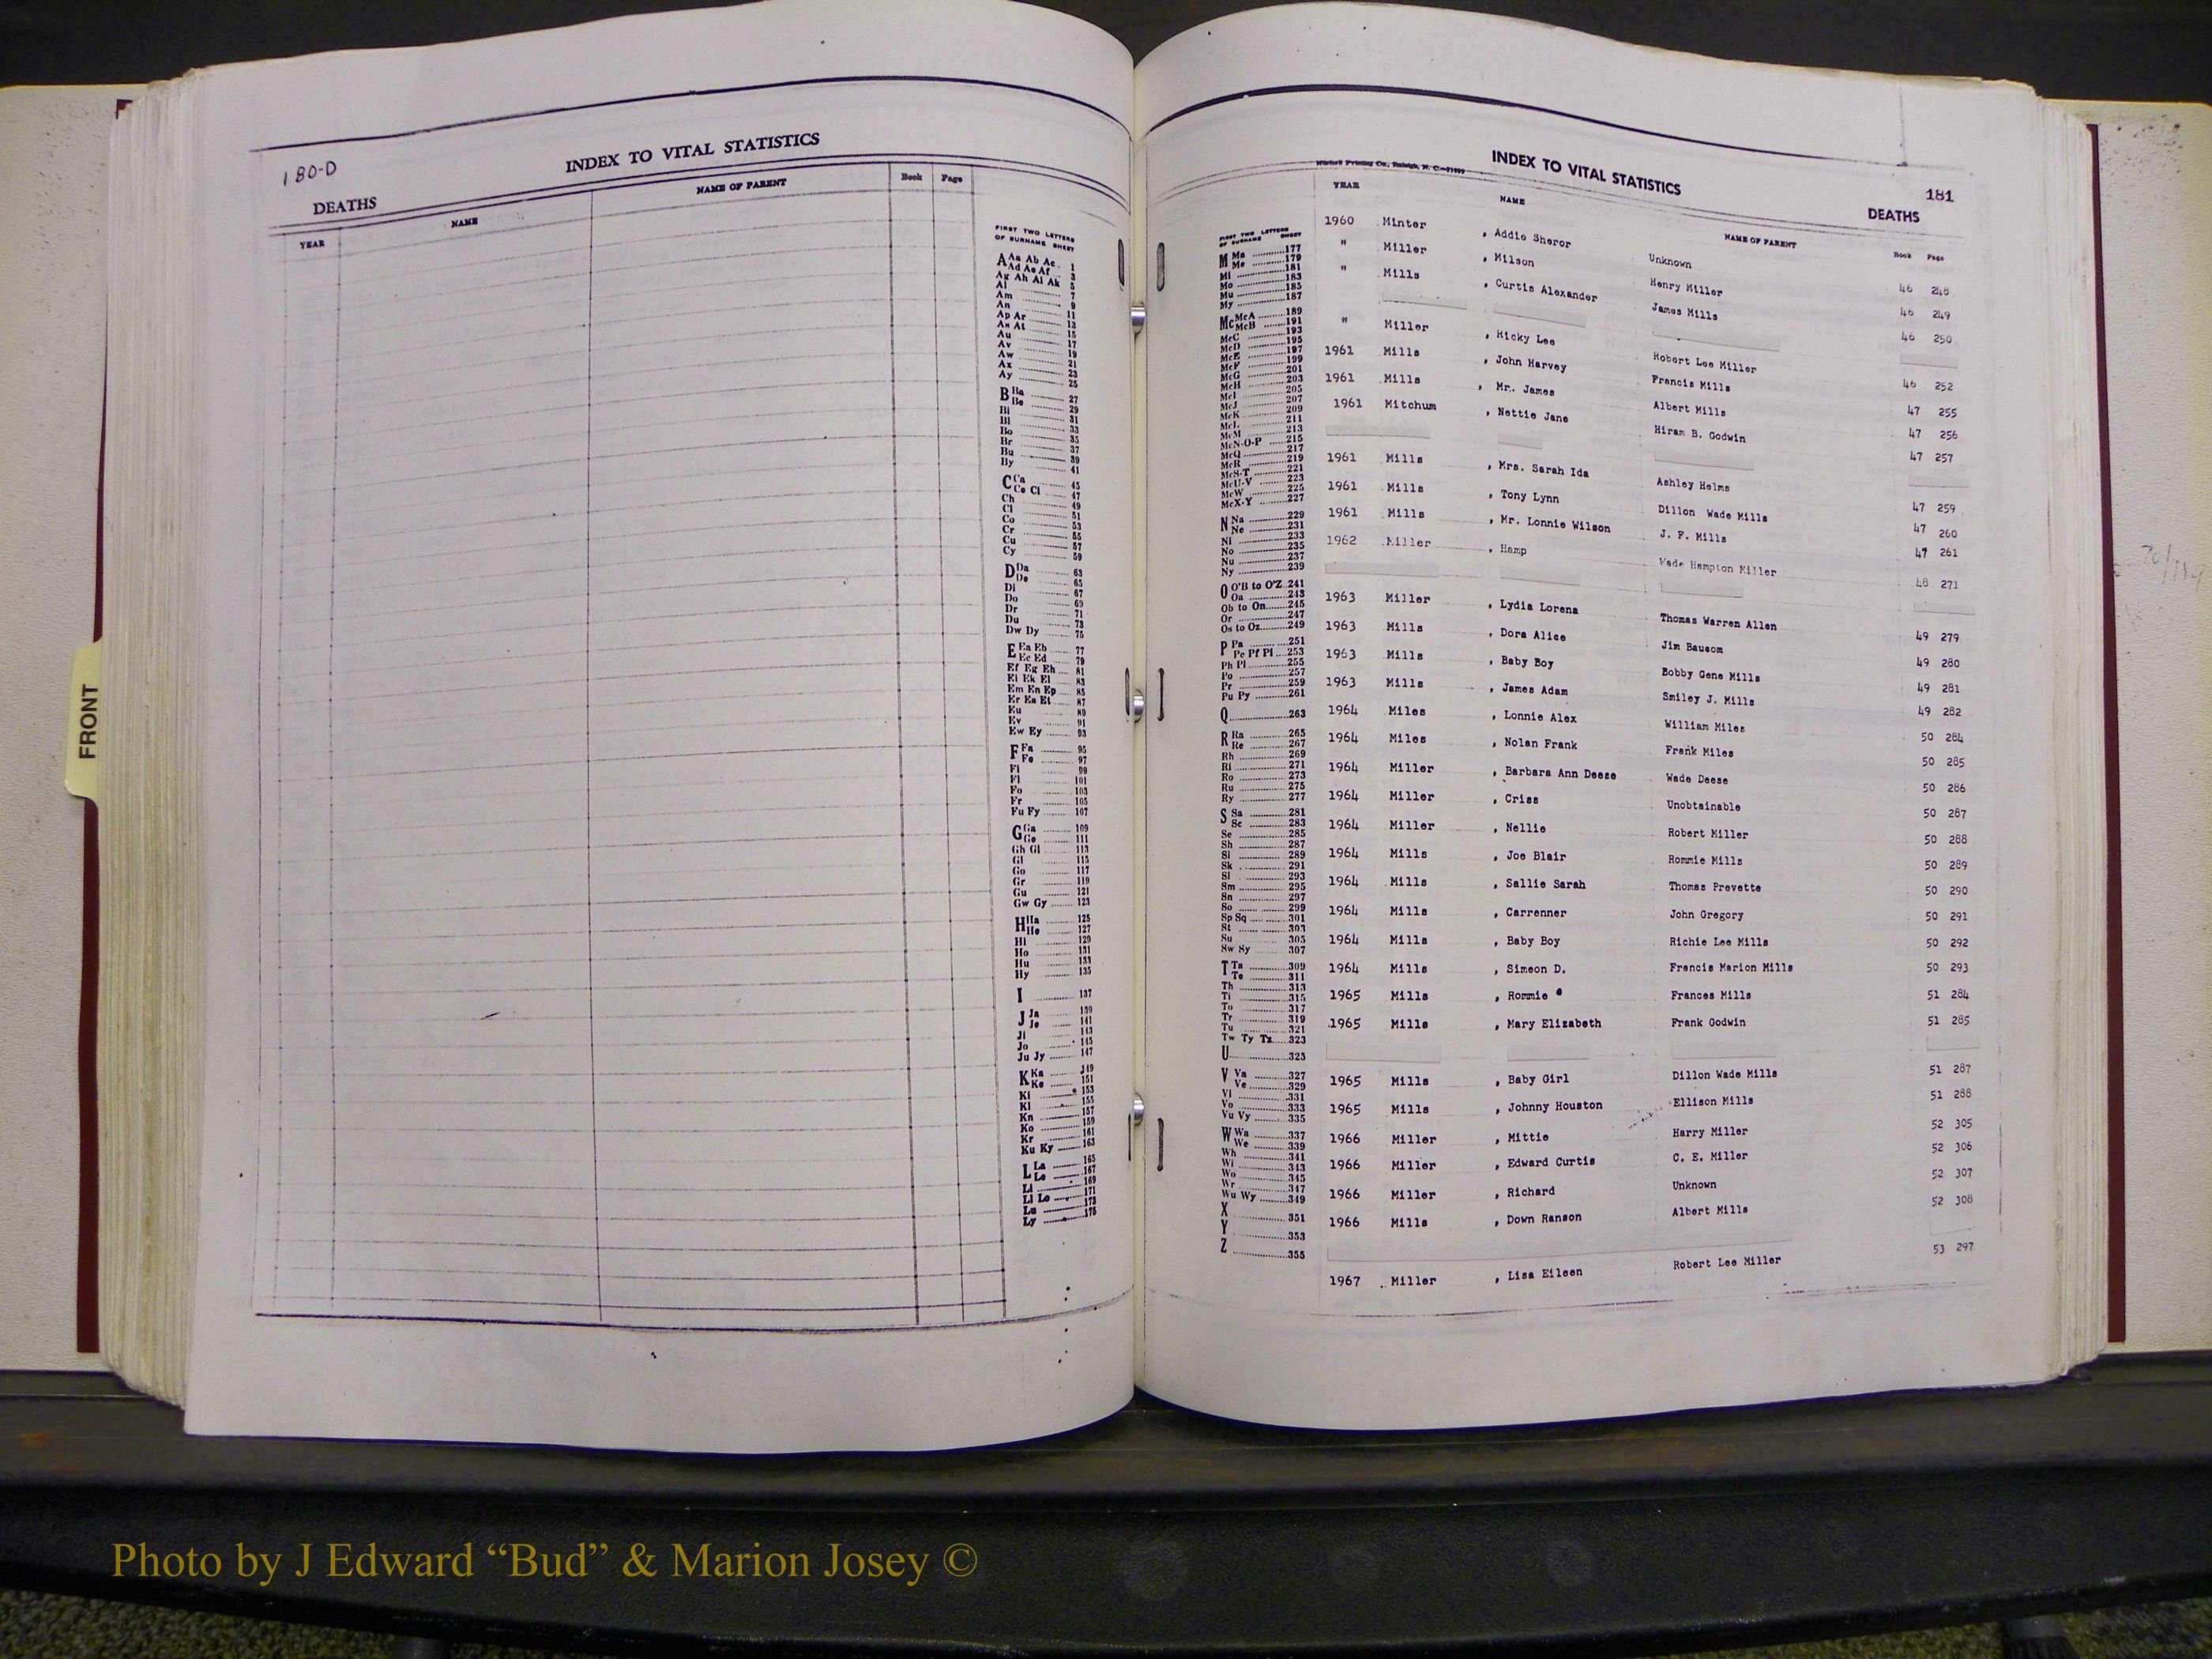 180-D
INDEX TO VITAL STATISTICS
DEATHS
YEAR NAME NAME OF PARENT Book Page
FIRST TWO LETTERS
OF SURNAME SHEET
A Aa Ab Ac 1
Ad Ae Af 3
Ag Ah Ai Ak 5
Al 7
Am 9
An 11
Ap Ar 13
As At 15
Au 17
Av 19
Aw 21
Ax 23
Ay 25
B Ba 27
Be 29
Bi 31
Bl 33
Bo 35
Br 37
Bu 39
By 41
C Ca 45
Ce Ci 47
Ch 49
Cl 51
Co 53
Cr 55
Cu 57
Cy 59
D Da 63
De 65
Di 67
Do 69
Dr 71
Du 73
Dw Dy 75
E Ea Eb 77
Ec Ed 79
Ef Eg Eh 81
Ei Ek El 83
Em En Ep 85
Er Es Et 87
Eu 89
Ev 91
Ew Ey 93
F Fa 95
Fe 97
Fi 99
Fl 101
Fo 103
Fr 105
Fu Fy 107
G Ga 109
Ge 111
Gh Gi 113
Gl 115
Go 117
Gr 119
Gu 121
Gw Gy 123
H Ha 125
He 127
Hi 129
Ho 131
Hu 133
Hy 135
I 137
J Ja 139
Je 141
Ji 143
Jo 145
Ju Jy 147
K Ka 149
Ke 151
Ki 153
Kl 155
Kn 157
Ko 159
Kr 161
Ku Ky 163
L La 165
Le 167
Li 169
Ll Lo 171
Lu 173
Ly 175
FRONT
INDEX TO VITAL STATISTICS
181
DEATHS
YEAR NAME NAME OF PARENT Book Page
FIRST TWO LETTERS
OF SURNAME SHEET
M Ma 177
Me 179
Mi 181
Mo 183
Mu 185
My 187
Mc McA 189
McB 191
McC 193
McD 195
McE 197
McF 199
McG 201
McH 203
McI 205
McJ 207
McK 209
McL 211
McM 213
McN-O-P 215
McQ 217
McR 219
McS-T 221
McU-V 223
McW 225
McX-Y 227
N Na 229
Ne 231
Ni 233
No 235
Nu 237
Ny 239
O O'B to O'Z 241
Oa 243
Ob to On 245
Or 247
Os to Oz 249
P Pa 251
Pe Pf Pi 253
Ph Pl 255
Po 257
Pr 259
Pu Py 261
Q 263
R Ra 265
Re 267
Rh 269
Ri 271
Ro 273
Ru 275
Ry 277
S Sa 281
Sc 283
Se 285
Sh 287
Si 289
Sk 291
Sl 293
Sm 295
Sn 297
So 299
Sp Sq 301
St 303
Su 305
Sw Sy 307
T Ta 309
Te 311
Th 313
Ti 315
To 317
Tr 319
Tu 321
Tw Ty Tz 323
U 325
V Va 327
Ve 329
Vi 331
Vo 333
Vu Vy 335
W Wa 337
We 339
Wh 341
Wi 343
Wo 345
Wr 347
Wu Wy 349
X 351
Y 353
Z 355
1960 Minter , Addie Sheror Unknown 46 248
" Miller , Milson Henry Miller 46 249
" Mills , Curtis Alexander James Mills 46 250
" Miller , Ricky Lee Robert Lee Miller 46 252
1961 Mills , John Harvey Francis Mills 47 255
1961 Mills , Mr. James Albert Mills 47 256
1961 Mitchum , Nettie Jane Hiram B. Godwin 47 257
1961 Mills , Mrs. Sarah Ida Ashley Helms 47 259
1961 Mills , Tony Lynn Dillon Wade Mills 47 260
1961 Mills , Mr. Lonnie Wilson J. F. Mills 47 261
1962 Miller , Hamp Wade Hampton Miller 48 271
1963 Miller , Lydia Lorena Thomas Warren Allen 49 279
1963 Mills , Dora Alice Jim Baucom 49 280
1963 Mills , Baby Boy Bobby Gene Mills 49 281
1963 Mills , James Adam Smiley J. Mills 49 282
1964 Miles , Lonnie Alex William Miles 50 284
1964 Miles , Nolan Frank Frank Miles 50 285
1964 Miller , Barbara Ann Deese Wade Deese 50 286
1964 Miller , Criss Unobtainable 50 287
1964 Miller , Nellie Robert Miller 50 288
1964 Mills , Joe Blair Rommie Mills 50 289
1964 Mills , Sallie Sarah Thomas Prevette 50 290
1964 Mills , Carrenner John Gregory 50 291
1964 Mills , Baby Boy Richie Lee Mills 50 292
1964 Mills , Simeon D. Francis Marion Mills 50 293
1965 Mills , Rommie Frances Mills 51 284
1965 Mills , Mary Elizabeth Frank Godwin 51 285
1965 Mills , Baby Girl Dillon Wade Mills 51 287
1965 Mills , Johnny Houston Ellison Mills 51 288
1966 Miller , Mittie Harry Miller 52 305
1966 Miller , Edward Curtis C. E. Miller 52 306
1966 Miller , Richard Unknown 52 307
1966 Mills , Down Ranson Albert Mills 52 308
1967 Miller , Lisa Eileen Robert Lee Miller 53 297
Photo by J Edward “Bud” & Marion Josey ©